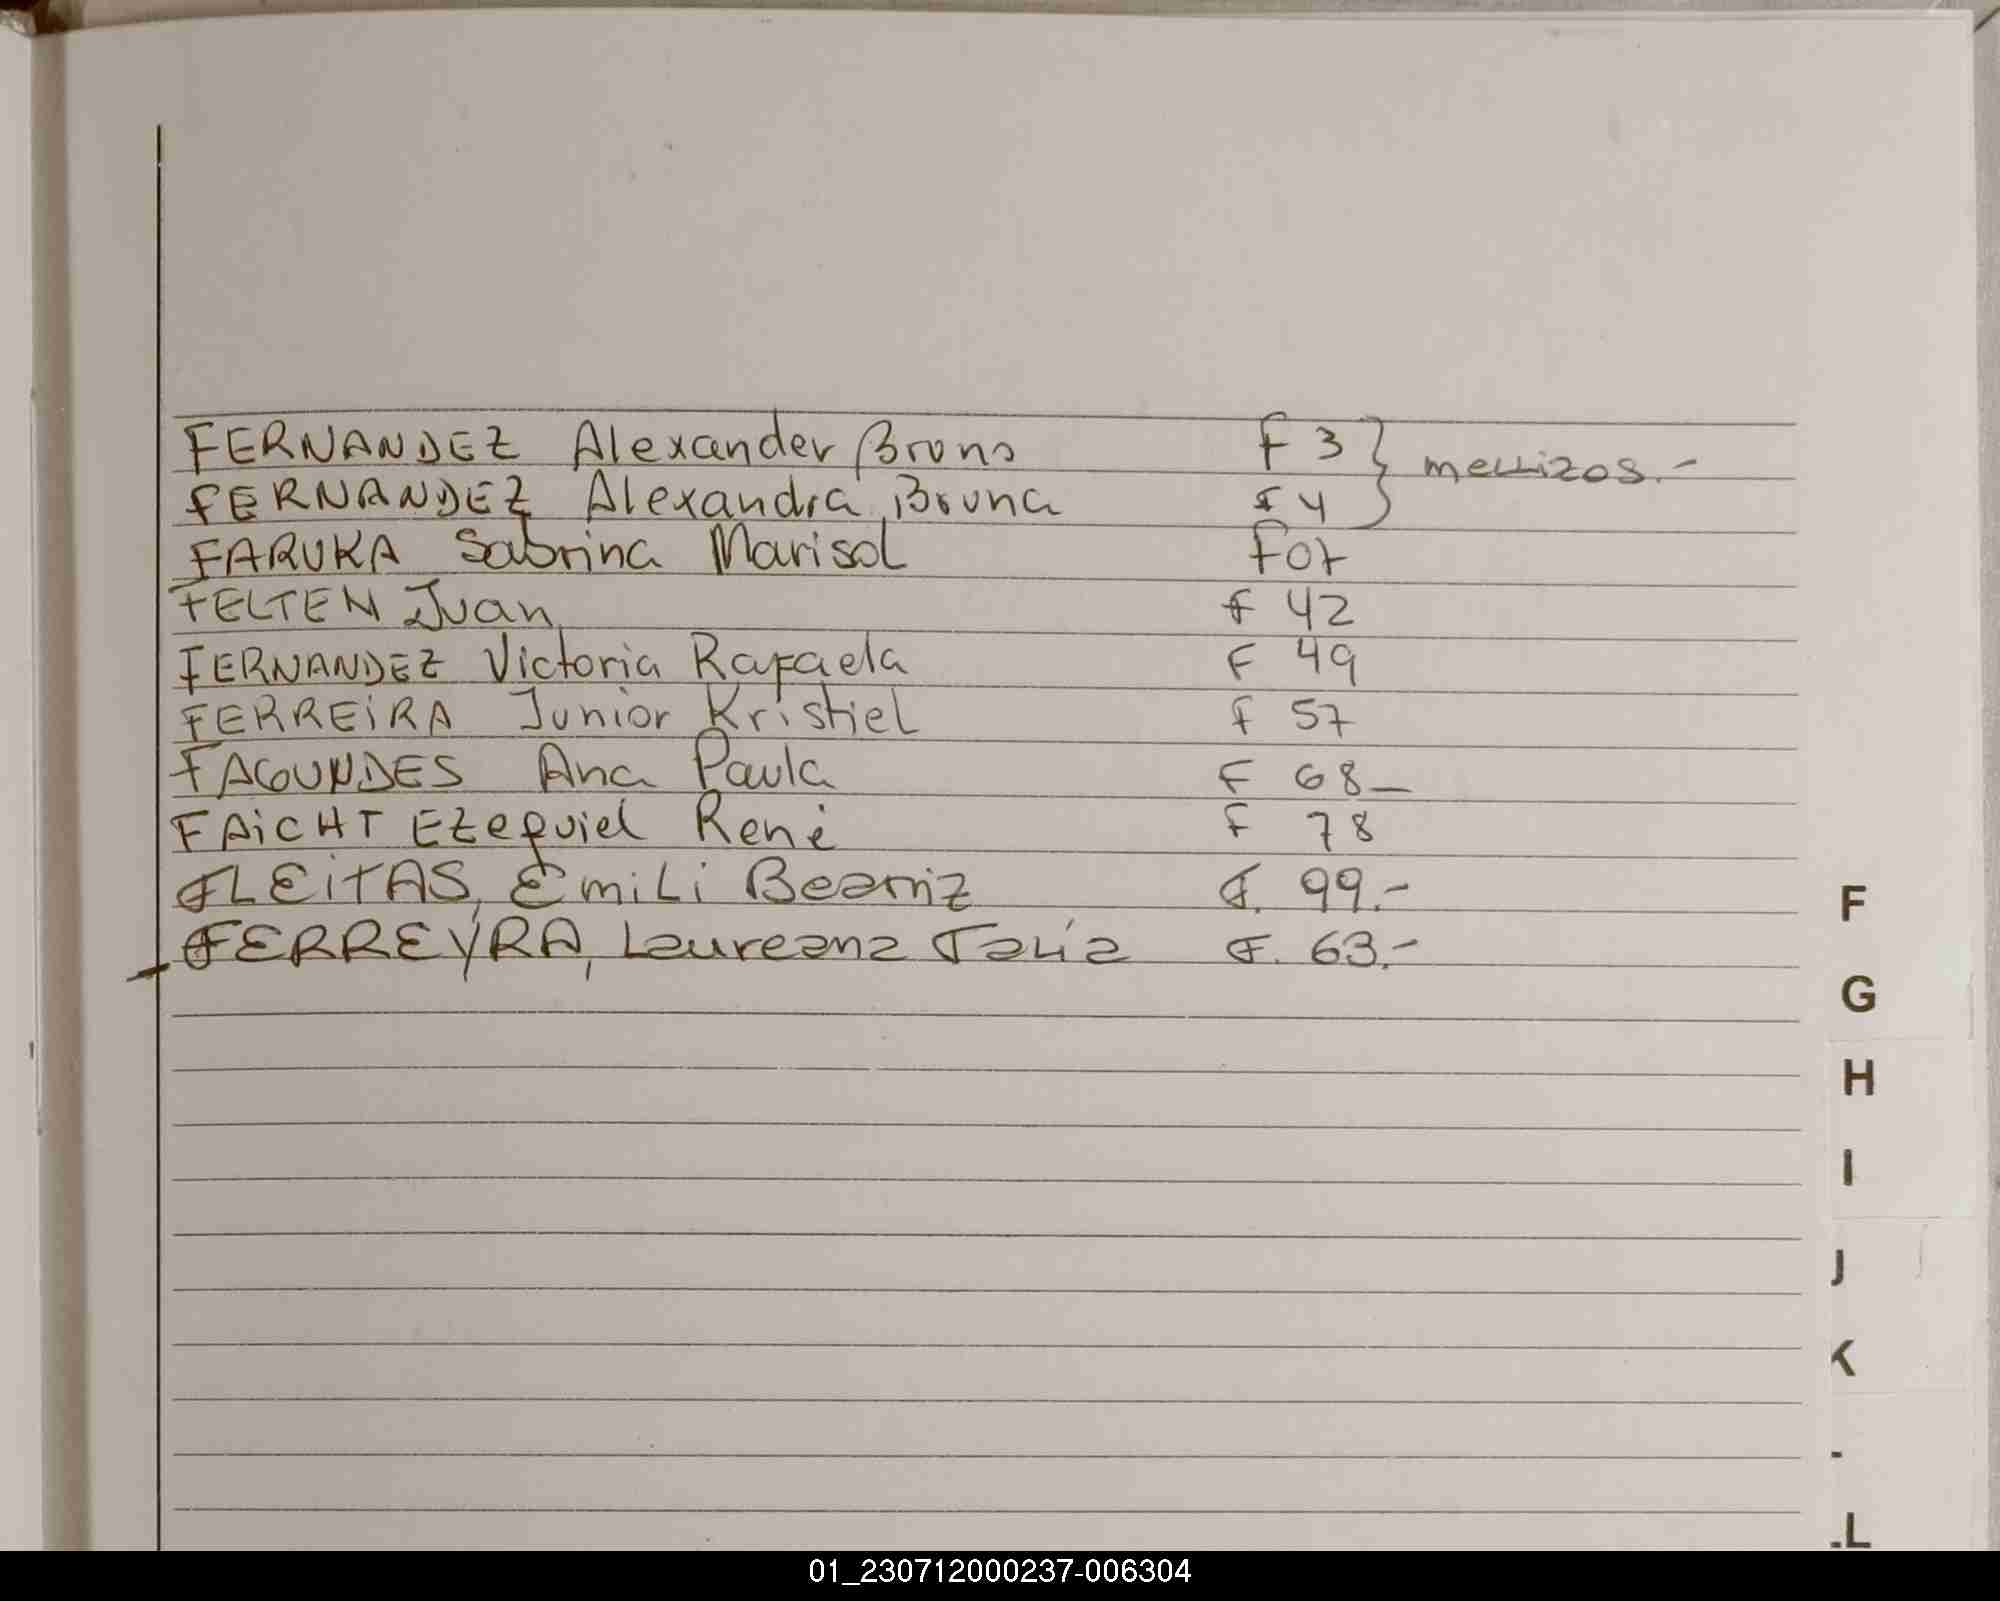 FERNANDEZ Alexander Bruno F 3 } mellizos.-
FERNANDEZ Alexandra Bruna F 4
FARUKA Sabrina Marisol F 07
FELTEN Juan F 42
FERNANDEZ Victoria Rafaela F 49
FERREIRA Junior Kristiel F 57
FAGUNDES Ana Paula F 68_
FAICHT Ezequiel René F 78
FLEITAS, Emili Beatriz F. 99.-
FERREYRA, Laureana F. 63.-
F
G
H
I
J
K
L
01_230712000237-006304